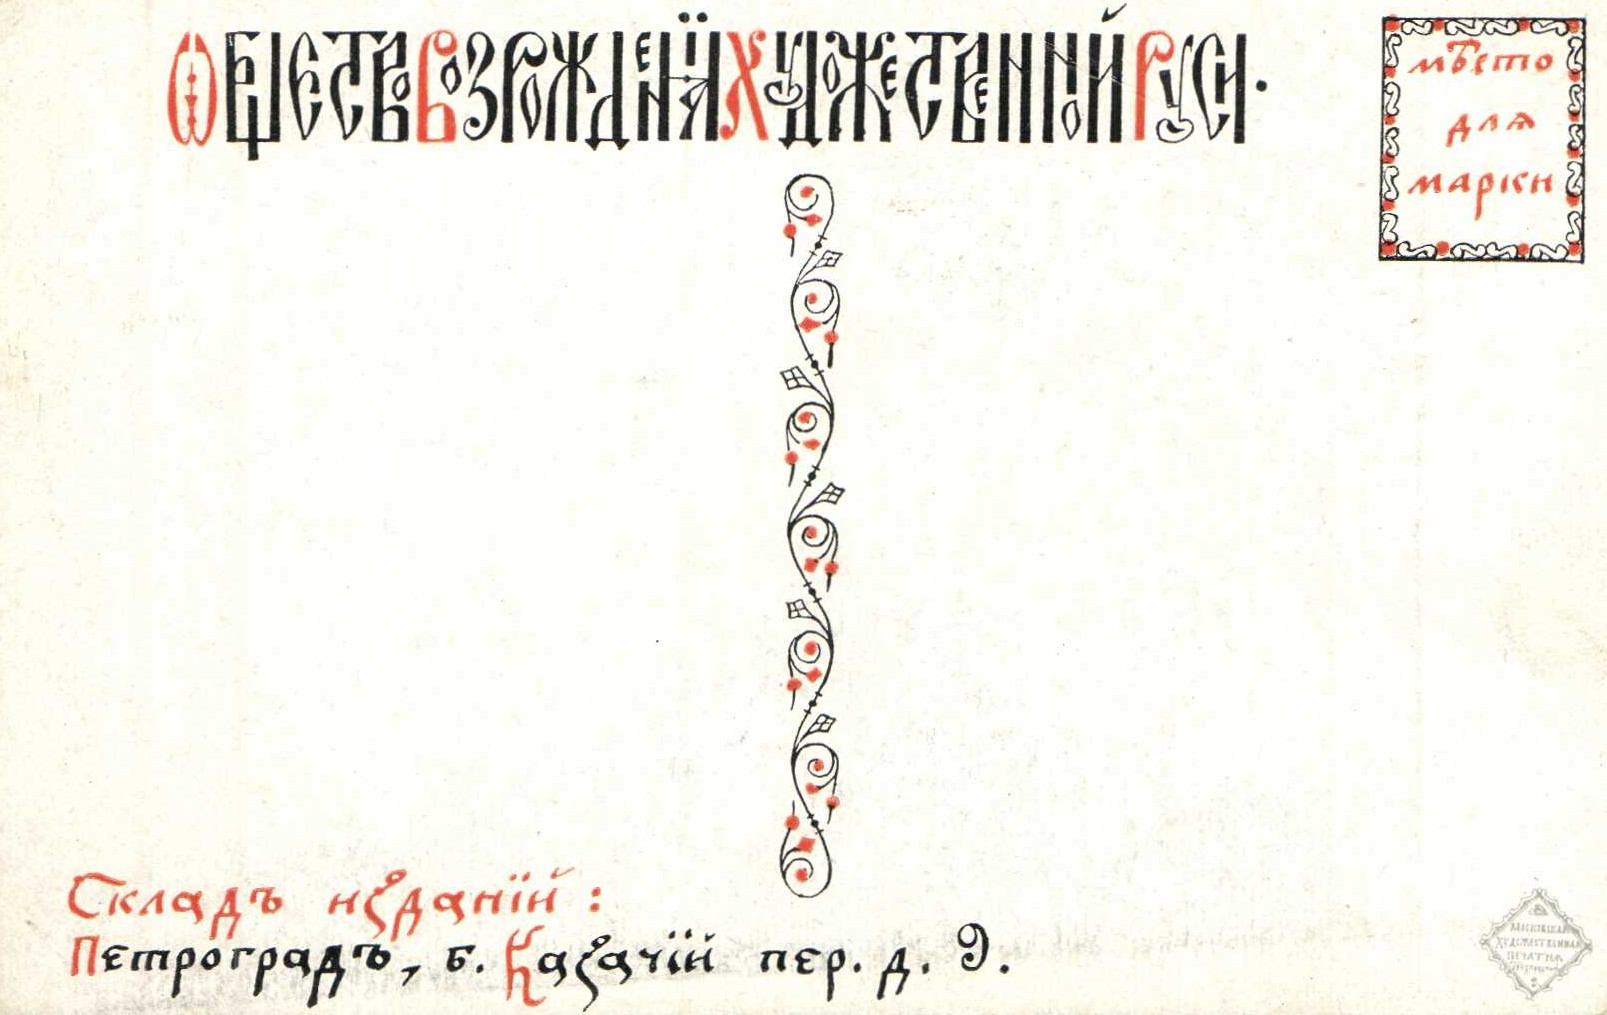 Ѡбщество Возрожденїя Художественной Руси.
мѣсто
для
марки
Складъ изданїй:
Петроградъ, б. Казачїй пер. д. 9.
Московская
Художественная
Печатня